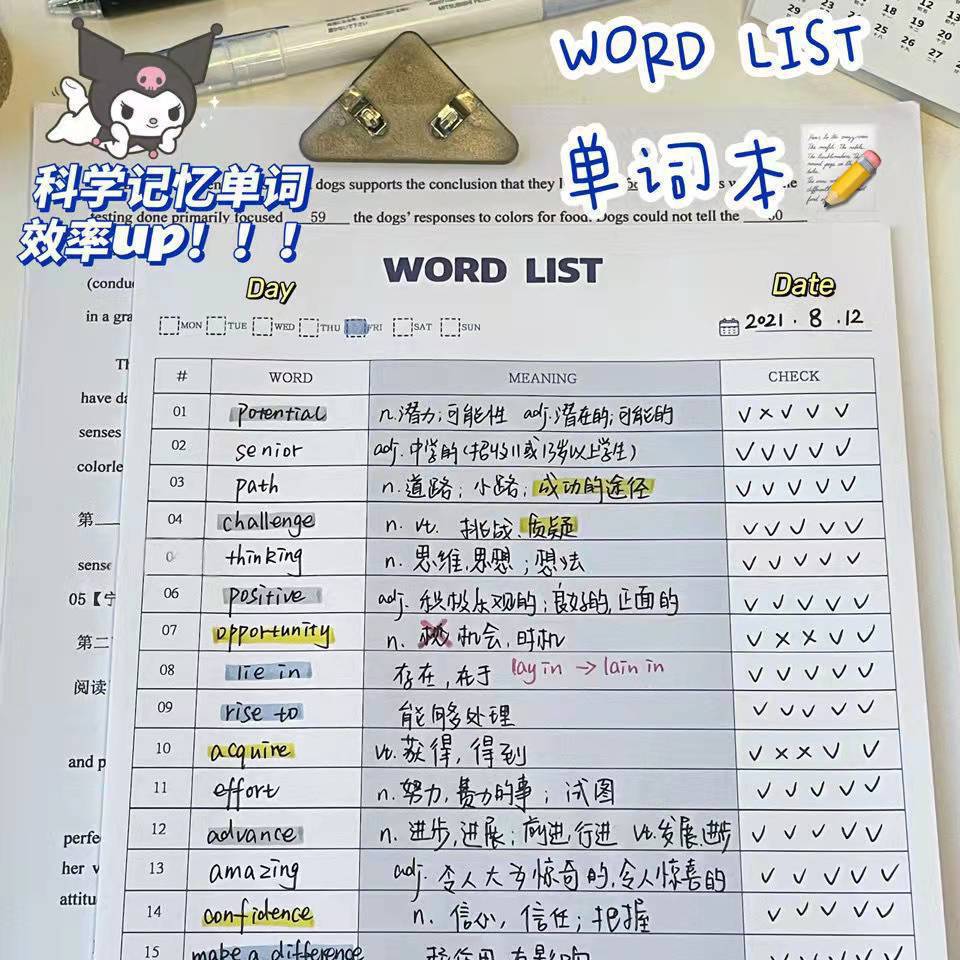 WORD LIST
单词本
科学记忆单词
效率up！！！
dogs supports the conclusion that they
testing done primarily focused 59 the dogs' responses to colors for food. Dogs could not tell the
in a gra
have da
senses
colorle
第
sense
05【宁
第二
阅读
and p
perfe
her v
attitu
WORD LIST
Day
Date
MON TUE WED THU FRI SAT SUN
2021.8.12
# WORD MEANING CHECK
01 potential n.潜力;可能性 adj.潜在的;可能的 ✓×✓✓✓
02 senior adj.中学的(招收11或13岁以上学生) ✓✓✓✓✓
03 path n.道路;小路;成功的途径 ✓✓✓✓✓
04 challenge n. vt. 挑战、质疑 ✓✓✓✓✓
thinking n.思维,思想;想法 ✓✓✓✓✓
06 positive adj.积极乐观的;良好的,正面的 ✓✓✓✓✓
07 opportunity n. 机会,时机 ✓××✓✓
08 lie in 存在,在于 lay in → lain in ✓✓✓✓✓
09 rise to 能够处理 ✓✓✓✓✓
10 acquire vt.获得,得到 ✓××✓✓
11 effort n.努力,费力的事;试图 ✓✓✓✓✓
12 advance n.进步,进展;前进,行进 vt.发展,进步 ✓✓✓✓✓
13 amazing adj.令人大为惊奇的,令人惊喜的 ✓✓✓✓✓
14 confidence n.信心,信任;把握 ✓✓✓✓✓
15 make a difference